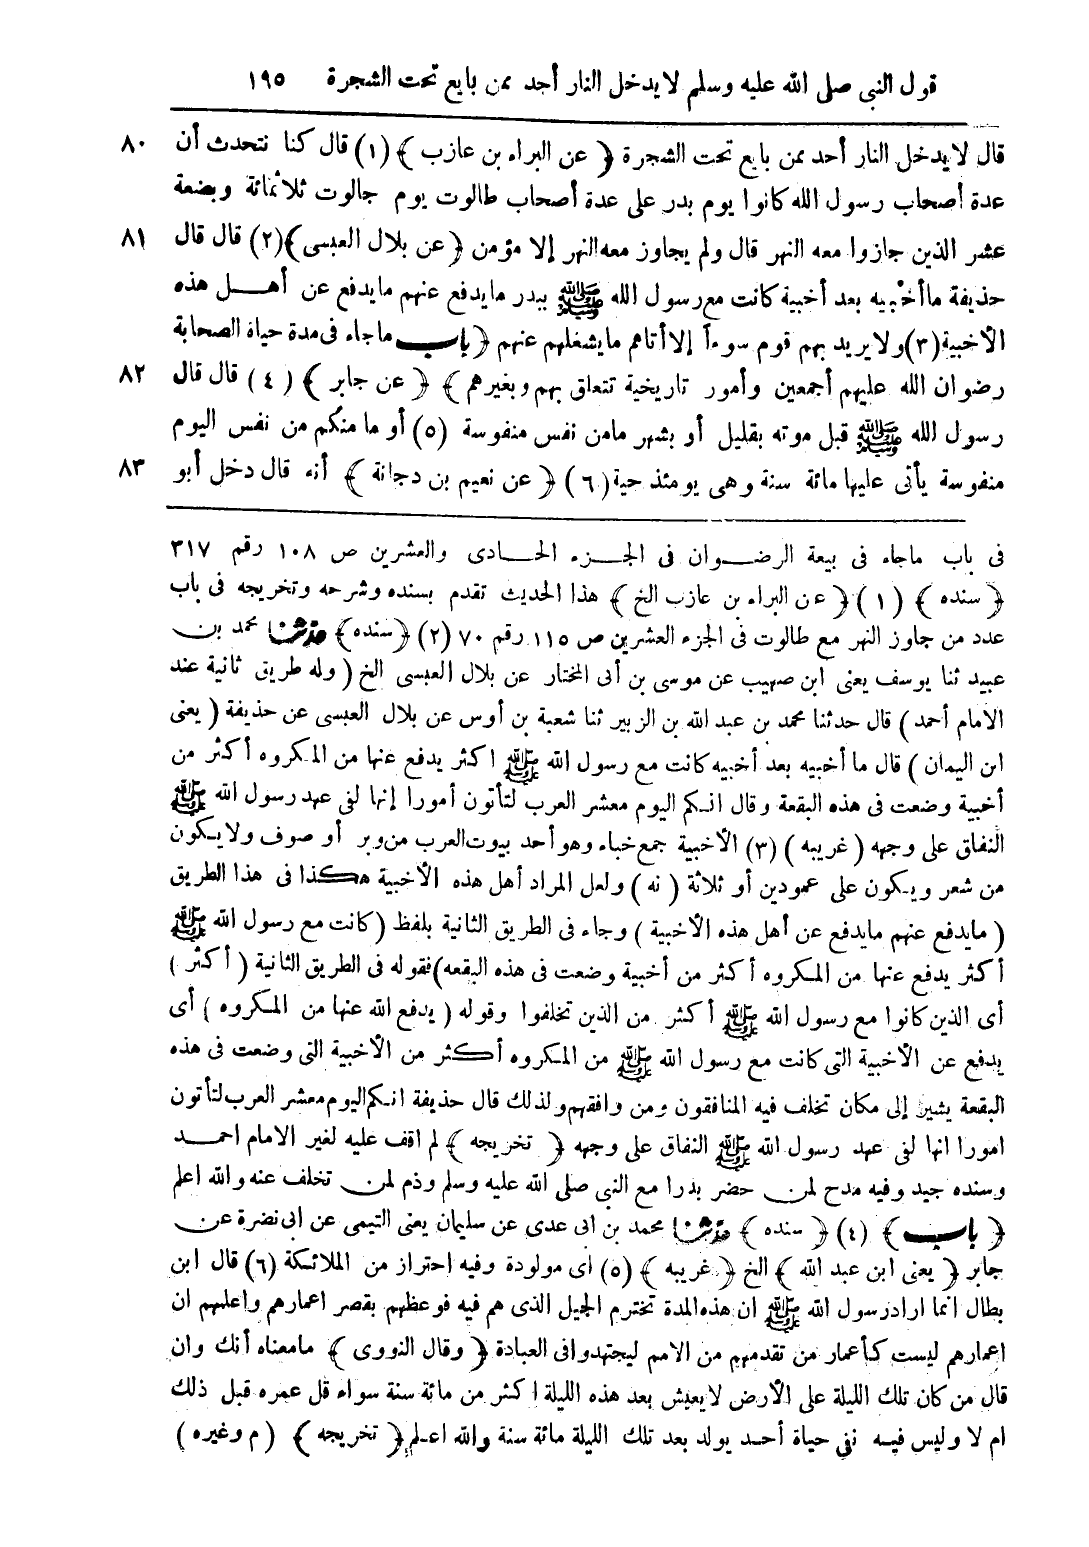 قول النبى صلى الله عليه وسلم لا يدخل النار أحد ممن بايع تحت الشجرة ١٩٥
قال لا يدخل النار أحد ممن بايع تحت الشجرة ﴿ عن البراء بن عازب ﴾ (١) قال كنا نتحدث أن ٨٠
عدة أصحاب رسول الله كانوا يوم بدر على عدة أصحاب طالوت يوم جالوت ثلاثمائة وبضعة
عشر الذين جازوا معه النهر قال ولم يجاوز معه النهر إلا مؤمن ﴿ عن بلال العبسى ﴾(٢) قال قال ٨١
حذيفة ما أخبيه بعد أخبية كانت مع رسول الله ﷺ ببدر ما يدفع عنهم ما يدفع عن أهـل هذه
الأخبية (٣) ولا يريد بهم قوم سوءاً إلا أتاهم ما يشغلهم عنهم ﴿ باب ما جاء فى مدة حياة الصحابة
رضوان الله عليهم أجمعين وأمور تاريخية تتعلق بهم وبغيرهم ﴾ ﴿ عن جابر ﴾ (٤) قال قال ٨٢
رسول الله ﷺ قبل موته بقليل أو بشهر ما من نفس منفوسة (٥) أو ما منكم من نفس اليوم
منفوسة يأتى عليها مائة سنة وهى يومئذ حية (٦) ﴿ عن نعيم بن دجانة ﴾ أنه قال دخل أبو ٨٣
فى باب ماجاء فى بيعة الرضـوان فى الجـزء الحـادى والعشرين ص ١٠٨ رقم ٣١٧
﴿ سنده ﴾ (١) ﴿ عن البراء بن عازب الخ ﴾ هذا الحديث تقدم بسنده وشرحه وتخريجه فى باب
عدد من جاوز النهر مع طالوت فى الجزء العشرين ص ١١٥ رقم ٧٠ (٢) ﴿سنده﴾ حدثنا محمد بن
عبيد ثنا يوسف يعنى ابن صهيب عن موسى بن أبى المختار عن بلال العبسى الخ ( وله طريق ثانية عند
الامام أحمد ) قال حدثنا محمد بن عبد الله بن الزبير ثنا شعبة بن أوس عن بلال العبسى عن حذيفة ( يعنى
ابن اليمان ) قال ما أخبيه بعد أخبيه كانت مع رسول الله ﷺ اكثر يدفع عنها من المكروه أكثر من
أخبية وضعت فى هذه البقعة وقال انـكم اليوم معشر العرب لتأتون أمورا إنها لفى عهد رسول الله ﷺ
النفاق على وجهه ( غريبه ) (٣) الأخبية جمع خباء وهو أحد بيوت العرب من وبر أو صوف ولا يـكون
من شعر ويـكون على عمودين أو ثلاثة ( نه ) ولعل المراد أهل هذه الأخبية هكذا فى هذا الطريق
( مايدفع عنهم مايدفع عن أهل هذه الأخبية ) وجاء فى الطريق الثانية بلفظ ( كانت مع رسول الله ﷺ
أكثر يدفع عنها من المـكروه أكثر من أخبية وضعت فى هذه البقعه) فقوله فى الطريق الثانية ( أكثر )
أى الذين كانوا مع رسول الله ﷺ أكثر من الذين تخلفوا وقوله ( يدفع الله عنها من المكروه ) أى
يدفع عن الأخبية التى كانت مع رسول الله ﷺ من المكروه أكثر من الأخبية التى وضعت فى هذه
البقعة يشير إلى مكان تخلف فيه المنافقون ومن وافقهم ولذلك قال حذيفة انـكم اليوم معشر العرب لتأتون
امورا انها لفى عهد رسول الله ﷺ النفاق على وجهه ﴿ تخريجه ﴾ لم اقف عليه لغير الامام احمـد
وسنده جيد وفيه مدح لمن حضر بدرا مع النبى صلى الله عليه وسلم وذم لمن تخلف عنه والله اعلم
﴿ باب ﴾ (٤) ﴿ سنده ﴾ حدثنا محمد بن ابى عدى عن سليمان يعنى التيمى عن ابى نضرة عن
جابر ﴿ يعنى ابن عبد الله ﴾ الخ ﴿ غريبه ﴾ (٥) اى مولودة وفيه احتراز من الملائكة (٦) قال ابن
بطال انما اراد رسول الله ﷺ ان هذه المدة تخترم الجيل الذى هم فيه فوعظهم بقصر اعمارهم واعلمهم ان
اعمارهم ليست كأعمار من تقدمهم من الامم ليجتهدوا فى العبادة ﴿ وقال النووى ﴾ ما معناه أنك وان
قال من كان تلك الليلة على الأرض لا يعيش بعد هذه الليلة اكثر من مائة سنة سواء قل عمره قبل ذلك
ام لا وليس فيـه نفى حياة أحـد يولد بعد تلك الليلة مائة سنة والله اعـلم ﴿ تخريجه ﴾ ( م وغيره )